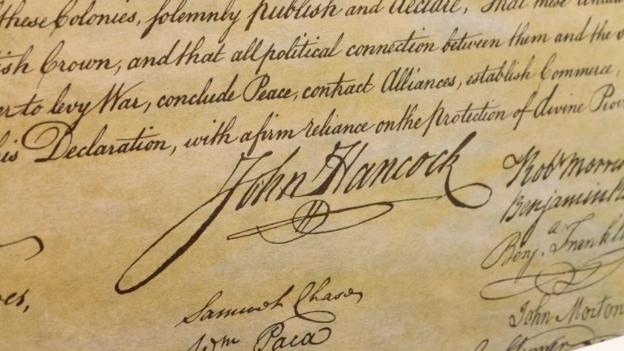 these Colonies, solemnly publish and declare, That these
ish Crown, and that all political connection between them and the
er to levy War, conclude Peace, contract Alliances, establish Commerce,
his Declaration, with a firm reliance on the protection of divine Prov
John Hancock
Robt Morris
Benjamin R
Benj. a Frankli
Samuel Chase
Wm Paca
John Morton